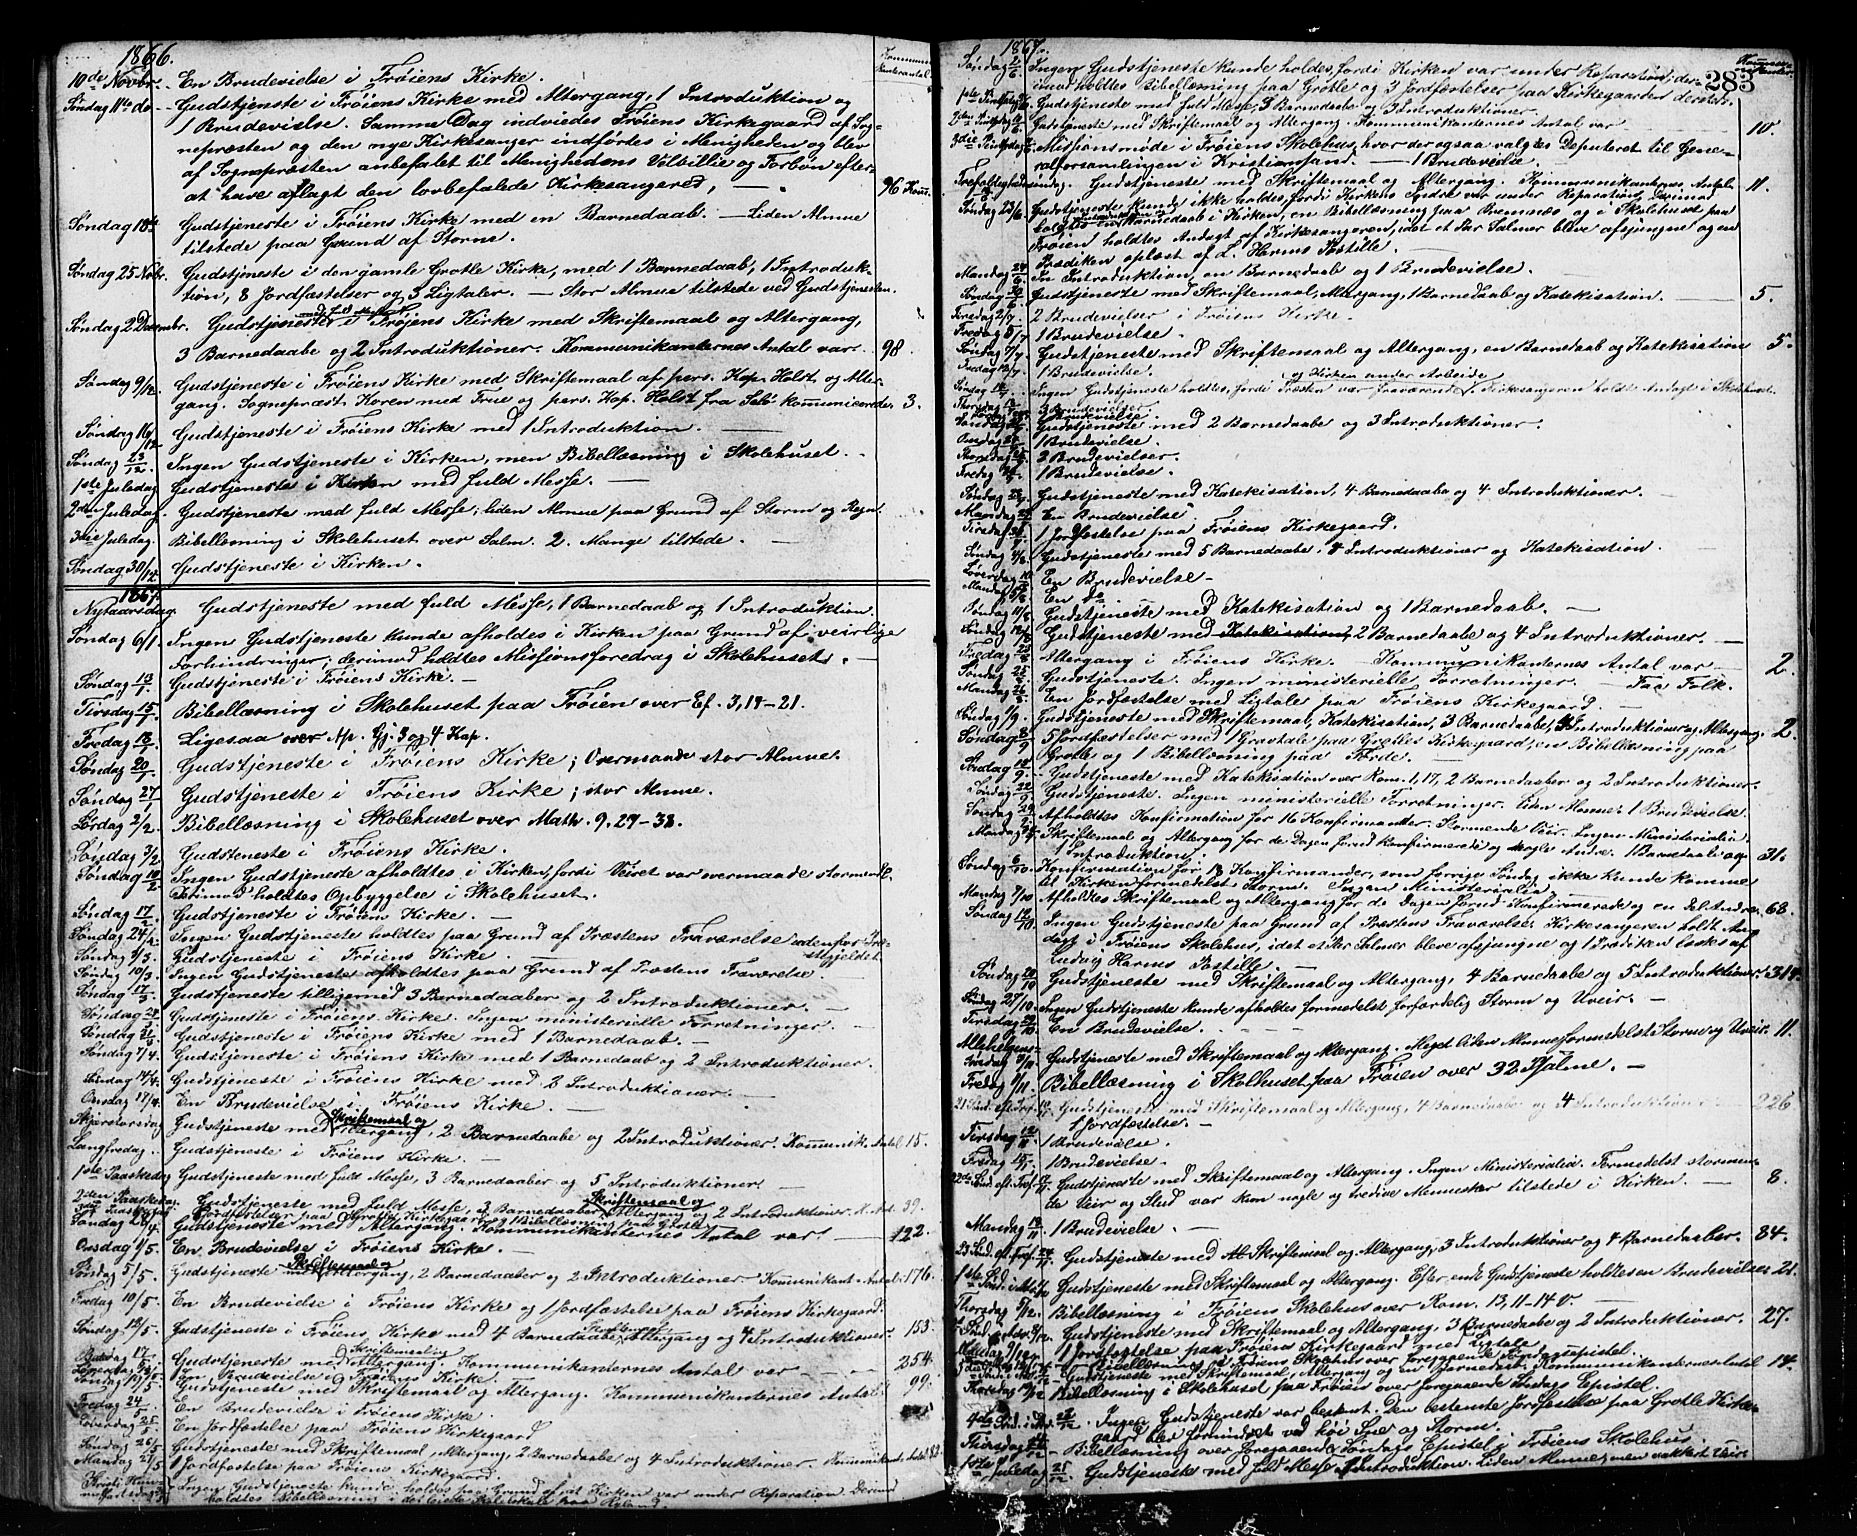 1866.
Kommuni-
kanterantal
10de Novbr. En Brudevielse i Frøiens Kirke.
Søndag 11te do. Gudstjeneste i Frøiens Kirke med Altergang, 1 Introduktion og
1 Brudevielse. Samme Dag indviedes Frøiens Kirkegaard af Sog-
nepræsten og den nye Kirkesanger indførtes i Menigheden og blev
af Sognepræsten anbefalet til Menighedens Velvillie og Forbøn efter-
at have aflagt den lovbefalede Kirkesangered, — 96 Kom.
Søndag 18de Gudstjeneste i Frøiens Kirke med en Barnedaab. — Liden Almue
tilstede paa Grund af Storm.
Søndag 25 Nobr. Gudstjeneste i den gamle Grotle Kirke, med 1 Barnedaab, 1 Introduk-
tion, 8 Jordfæstelser og 3 Ligtaler. — Stor Almue tilstede ved Gudstjenesten.
Søndag 2 Decembr. Gudstjeneste med fuld Messe i Frøiens Kirke med Skriftemaal og Altergang,
3 Barnedaabe og 2 Introduktioner. Kommunikanternes Antal var 98.
Søndag 9/12 Gudstjeneste i Frøiens Kirke med Skriftemaal af pers. Kap. Holst og Alter-
gang. Sognepræst Koren med Frue og pers. Kap. Holst fra Selø kommunicerede. 3.
Søndag 16/12 Gudstjeneste i Frøiens Kirke med 1 Introduktion. —
Søndag 23/12 Ingen Gudstjeneste i Kirken, men Bibellæsning i Skolehuset. —
1ste Juledag Gudstjeneste i Kirken med fuld Messe. —
2den Juledag. Gudstjeneste med fuld Messe; liden Almue paa Grund af Storm og Regn.
3die Juledag. Bibellæsning i Skolehuset over Salm. 2. Mange tilstede. —
Søndag 30/12 Gudstjeneste i Kirken.
1867.
Nytaarsdag. Gudstjeneste med fuld Messe, 1 Barnedaab og 1 Introduktion.
Søndag 6/1 Ingen Gudstjeneste kunde afholdes i Kirken paa Grund af veirlige
Forhindringer; derimod holdtes Missionsforedrag i Skolehuset. —
Søndag 13/1 Gudstjeneste i Frøiens Kirke. —
Tirsdag 15/1 Bibellæsning i Skolehuset paa Frøien over Ef. 3, 14-21.
Fredag 18/1 Ligesaa over Ap. Gj. 3 og 4 Kap.
Søndag 20/1 Gudstjeneste i Frøiens Kirke; Overmaade stor Almue.
Søndag 27/1 Gudstjeneste i Frøiens Kirke; stor Almue.
Lørdag 2/2 Bibellæsning i Skolehuset over Math. 9. 27-38.
Søndag 3/2 Gudsteneste i Frøiens Kirke.
Søndag 10/2 Ingen Gudstjeneste afholdtes i Kirken, fordi Veiret var overmaade stormende.
Derimod holdtes Opbyggelse i Skolehuset.
Søndag 17/2 Gudstjeneste i Frøiens Kirke. —
Søndag 24/2 Ingen Gudstjeneste holdtes paa Grund af Præstens Fraværelse udenfor Præ-
stegjeldet.
Søndag 3/3 Gudstjeneste i Frøiens Kirke. —
Søndag 10/3 Ingen Gudstjeneste afholdtes paa Grund af Præstens Fraværelse.
Søndag 17/3 Gudstjeneste tilligemed 3 Barnedaaber og 2 Introduktioner. —
Søndag 24/3 Gudstjeneste i Frøiens Kirke. Ingen ministerielle Forretninger. —
Søndag 31/3 Gudstjeneste i Frøiens Kirke med 1 Barnedaab. —
Søndag 7/4 Gudstjeneste i Frøiens Kirke med 1 Barnedaab og 2 Introduktioner.
Søndag 14/4 Gudstjeneste i Frøiens Kirke med 2 Introduktioner. —
Onsdag 17/4 En Brudevielse i Frøiens Kirke. —
Skjærtorsdag Gudstjeneste med Skriftemaal og Altergang, 2 Barnedaabe og 2 Introduktioner. Kommunik. Antal 15.
Langfredag. Gudstjeneste i Frøiens Kirke. —
1ste Paaskedag Gudstjeneste med fuld Messe, 3 Barnedaaber og 5 Introduktioner. —
2den Paaskedag Gudstjeneste med fuld Messe, 3 Barnedaaber, Skriftemaal og Altergang og 2 Introduktioner. K. Ant. 39.
Jordfæstelser paa Grotle Kirkegaard og 1 Bibellæsning paa Grotle.
Søndag 28/4 Gudstjeneste med Altergang. Kommunikanternes Antal var — 122.
Onsdag 1/5 En Brudevielse i Frøiens Kirke. —
Søndag 5/5 Gudstjeneste med Skriftemaal og Altergang, 2 Barnedaaber og 2 Introduktioner Kommunikant-Antal 176.
Fredag 10/5 En Brudevielse i Frøiens Kirke og 1 Jordfæstelse paa Frøiens Kirkegaard.
Søndag 12/5 Gudstjeneste i Frøiens Kirke med 4 Barnedaabe, Skriftemaal, Altergang og 4 Introduktioner 153.
Gudstjeneste med Skriftemaal og Altergang. Kommunikanternes Antal var — 254.
En Brudevielse i Frøiens Kirke.
Søndag 19/5 Gudstjeneste med Skriftemaal og Altergang. Kommunikanternes Antal 99.
Fredag 24/5 En Brudevielse i Frøiens Kirke.
Løverdag 25/5 En Jordfæstelse paa Frøiens Kirkegaard
Søndag 26/5 Gudstjeneste med Skriftemaal, Altergang, 2 Barnedaaber og 4 Introduktioner. Kommunikant. Antal 82.
Mandag 27/5 1 Jordfæstelse paa Frøiens Kirkegaard.
Kristi Him- Ingen Gudstjeneste kunde holdes paa Grund af at Kirken var under Reparation. Derimod
holdtes Bibellæsning
1867.
Kommu-
nikanter.
283
Søndag 2/6 Ingen Gudstjeneste kunde holdes, fordi Kirken var under Reparation, der-
imod holdtes Bibellæsning paa Grotle og 3 Jordfæstelser paa Kirkegaarden dersteds.
1ste Pintsedag Gudstjeneste med fuld Messe, 3 Barnedaabe og 3 Introduktioner.
2den Pintsedag Gudstjeneste med Skriftemaal og Altergang. Kommunikanternes Antal var — 10.
3die Pintsedag Missionsmøde i Frøiens Skolehus, hvor der ogsaa valgtes Deputeret til Gene-
ralforsamlingen i Kristiansand. — 1 Brudevielse. —
Trefoldighedssøndag. Gudstjeneste med Skriftemaal og Altergang. Kommunikanternes Antal 11.
Søndag 23/6 Gudstjeneste kunde ikke holdes, fordi Kirkens Indre var under Reparation. Derimod
holdtes en Introduktion og Barnedaab i Kirken, en Bibellæsning paa Bremnæs og i Skolehuset paa
Frøien holdtes Andagt af Kirkesangeren, idet et Par Salmer bleve afsjungne og en
Prædiken oplæst af L. Harms Postille. —
Mandag 24/6 En Introduktion, en Barnedaab og 1 Brudevielse.
Søndag 30/6 Gudstjeneste med Skriftemaal, Altergang, 1 Barnedaab og Katekisation. 5.
Tirsdag 2/7 2 Brudevielser i Frøiens Kirke.
Fredag 5/7 1 Brudevielse.
Søndag 7/7 Gudstjeneste med Skriftemaal og Altergang, en Barnedaab og Katekisation 5.
Fredag 12/7 1 Brudevielse.
Søndag 14/7 Ingen Gudstjeneste holdtes, fordi Præsten var fraværende og Kirken under Arbeide. Kirkesangeren holdt Andagt i Skolehuset.
3 Brudevielser.
1 Brudevielse.
Søndag 21/7 Gudstjeneste med 2 Barnedaabe og 3 Introduktioner.
Onsdag 24/7 1 Brudevielse.
Thorsdag 25/7 2 Brudevielser.
Fredag 26/7 1 Brudevielse.
Søndag 28/7 Gudstjeneste med Katekisation, 4 Barnedaabe og 4 Introduktioner.
Mandag 29/7 En Brudevielse
Tirsdag 30/7 1 Jordfæstelse paa Frøiens Kirkegaard.
Søndag 4/8 Gudstjeneste med 5 Barnedaabe, 4 Introduktioner og Katekisation.
Løverdag 10/8 En Brudevielse —
Mandag En do
Søndag 11/8 Gudstjeneste med Katekisation og 1 Barnedaab. —
Søndag 18/8 Gudstjeneste med Katekisation, 2 Barnedaabe og 4 Introduktioner. —
Fredag 23/8 Altergang i Frøiens Kirke. Kommunikanternes Antal var — 2.
Søndag 25/8 Gudstjeneste. Ingen ministerielle Forretninger. — Faa Folk.
Mandag 26/8 En Jordfæstelse med Ligtale paa Frøiens Kirkegaard.
Søndag 1/9 Gudstjeneste med Skriftemaal, Katekisation, 3 Barnedaabe, Introduktioner og Altergang. 2.
Søndag 8/9 5 Jordfæstelser med 1 Gravtale paa Grotles Kirkegaard, en Bibellæsning paa
Grotle og 1 Bibellæsning paa Førde. —
Søndag 15/9 Gudstjeneste med Katekisation over Rom. 1, 17, 2 Barnedaaber og 2 Introduktioner.
Søndag 22/9 Gudstjeneste. Ingen ministerielle Forretninger. Liden Almue. 1 Brudevielse
Søndag 29/9 Afholdtes Konfirmation for 16 Konfirmander. Stormende Veir. Ingen Ministerialia.
Mandag Skriftemaal og Altergang for de Dagen forud Konfirmerede og nogle Andre. 1 Barnedaab og
1 Introduktion. 31.
Søndag 6/10 Konfirmation for 13 Konfirmander, som forrige Søndag ikke kunde komme
til Kirken formedelst Storm. Ingen Ministerialia.
Mandag 7/10 Afholdtes Skriftemaal og Altergang for de Dagen forud Konfirmerede og en Del Andre. 68.
Søndag 13/10 Ingen Gudstjeneste paa Grund af Præstens Fraværelse; Kirkesangeren holdt An-
dagt i Frøiens Skolehus, idet et Par Salmer bleve afsjungne og 1 Prædiken læstes af
Ludvig Harms Postille. —
Søndag 20/10 Gudstjeneste med Skriftemaal og Altergang, 4 Barnedaabe og 5 Introduktioner. 314.
Søndag 27/10 Ingen Gudstjeneste kunde afholdes formedelst forfærdelig Storm og Uveir. —
Tirsdag 29/10 En Brudevielse. —
Allehelgens-
Søndag 3/11 Gudstjeneste med Skriftemaal og Altergang. Meget liden Almue formedelst Storm og Uveir. 11.
Fredag 8/11 Bibellæsning i Skolhuset paa Frøien over 32 Psalme. —
21 Sønd. eft. Tref. 10/11 Gudstjeneste med Skriftemaal og Altergang, 4 Barnedaabe og 4 Introduktioner 226
1 Jordfæstelse.
Tirsdag 12/11 1 Brudevielse.
Fredag 15/11 1 Brudevielse.
22de Sønd. eft. Tref. 17/11 Gudstjeneste med Skriftemaal og Altergang. Ingen Ministerialia. Formedelst stormen-
de Veir og Slud var kun nogle og tredive Mennesker tilstede i Kirken. — 8.
Mandag 18/11 1 Brudevielse. —
23 Sønd. eft. Tref. 24/11 Gudstjeneste med Skriftemaal og Altergang, 3 Introduktioner og 4 Barnedaaber. 84.
1ste Sønd. i Adv. Gudstjeneste med Skriftemaal og Altergang. Efter ende Gudstjeneste holdtes en Brudevielse 21.
Thorsdag 5/12 Bibellæsning i Frøiens Skolehus over Rom. 13, 11-14 v. —
2 Sønd. i Adv. 8/12 Gudstjeneste med Skriftemaal og Altergang, 3 Barnedaabe og 2 Introduktioner. 27.
1 Jordfæstelse paa Frøiens Kirkegaard med Ligtale
Bibellæsning i Frøiens Skolehus over foregaaende Søndagsepistel.
Gudstjeneste med Skriftemaal, Altergang og en Barnedaab. Kommunikanternes Antal 14.
Bibellæsning i Skolehuset paa Frøien over foregaaende Søndags Epistel
4de Sønd. i Adv. 22/12 Ingen Gudstjeneste var bestemt. Den bestemte Jordfæstelse paa Grotle Kirke-
gaard blev forhindret ved høi Sne og Storm.
Bibellæsning over foregaaende Søndags Epistel i Frøiens Skolehus.
1ste Juledag 25/12 Gudstjeneste med fuld Messe, 1 Introduktion. Liden Almue, men vakkert Veir